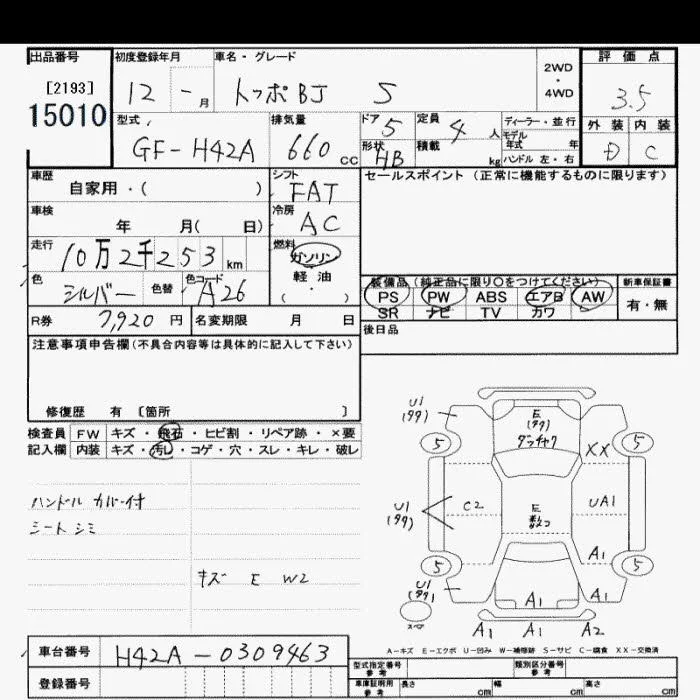 出品番号
[2193]
15010
初度登録年月
12 - 月
車名・グレード
トッポBJ S
2WD
・
4WD
評価点
3.5
外装 内装
D C
型式
GF-H42A
排気量
660 cc
ドア 5
定員 4 人
形状 HB
積載 kg
ディーラー・並行
モデル
年式 年
ハンドル 左・右
車歴
自家用・( )
シフト
FAT
セールスポイント(正常に機能するものに限ります)
車検
年 月( 日)
冷房
AC
走行
10万2千253 km
燃料
ガソリン
軽・油
( ・ )
色
シルバー
色替
色コード
A26
装備品(純正品に限り○をつけてください)
PS PW ABS エアB AW
SR ナビ TV カワ
新車保証書
有・無
R券 7,920 円
名変期限 月 日
後日品
注意事項申告欄(不具合内容等は具体的に記入して下さい)
修復歴 有 〔箇所 〕
検査員 FW キズ・飛石・ヒビ割・リペア跡・×要
記入欄 内装 キズ・汚し・コゲ・穴・スレ・キレ・破レ
ハンドル カバー付
シート シミ
キズ E W2
U1
(タタ)
E
(タタ)
5
5
XX
U1
(タタ)
C2
E
UA1
5
5
A1
U1
(タタ)
スペア
A1
A1
A1
A1
A2
A-キズ E-エクボ U-凹み W-補修跡 S-サビ C-腐食 XX-交換済
車台番号
H42A-0309463
登録番号
型式指定番号
参考
類別区分番号
参考
車庫証明用
参考
長さ cm
幅 cm
高さ cm